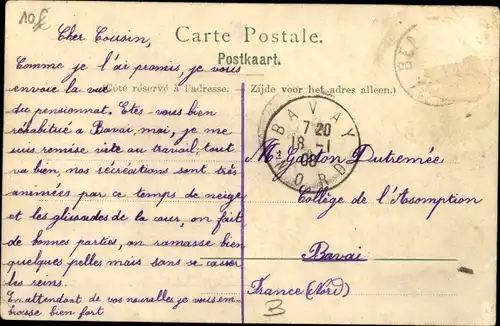 10f
Carte Postale.
Postkaart.
Côté réservé à l'adresse.
Zijde voor het adres alleen.
Cher Cousin,
Comme je l'ai promis, je vous
envoie la vue
du pensionnat. Etes-vous bien
réhabitué a Bavai, moi, je me
suis remise vite au travail, tout
va bien, nos récréations sont très
animées par ce temps de neige
et les glissades de la cour, on fait
de bonnes parties, on ramasse bien
quelques pelles mais sans se casser
les reins.
En attendant de vos nouvelles je vous em-
brasse bien fort
BAVAY
7 20
8 -1
08
NORD
M. Gaston Dutremée
Collège de l'Assomption
Bavai
France (Nord)
3